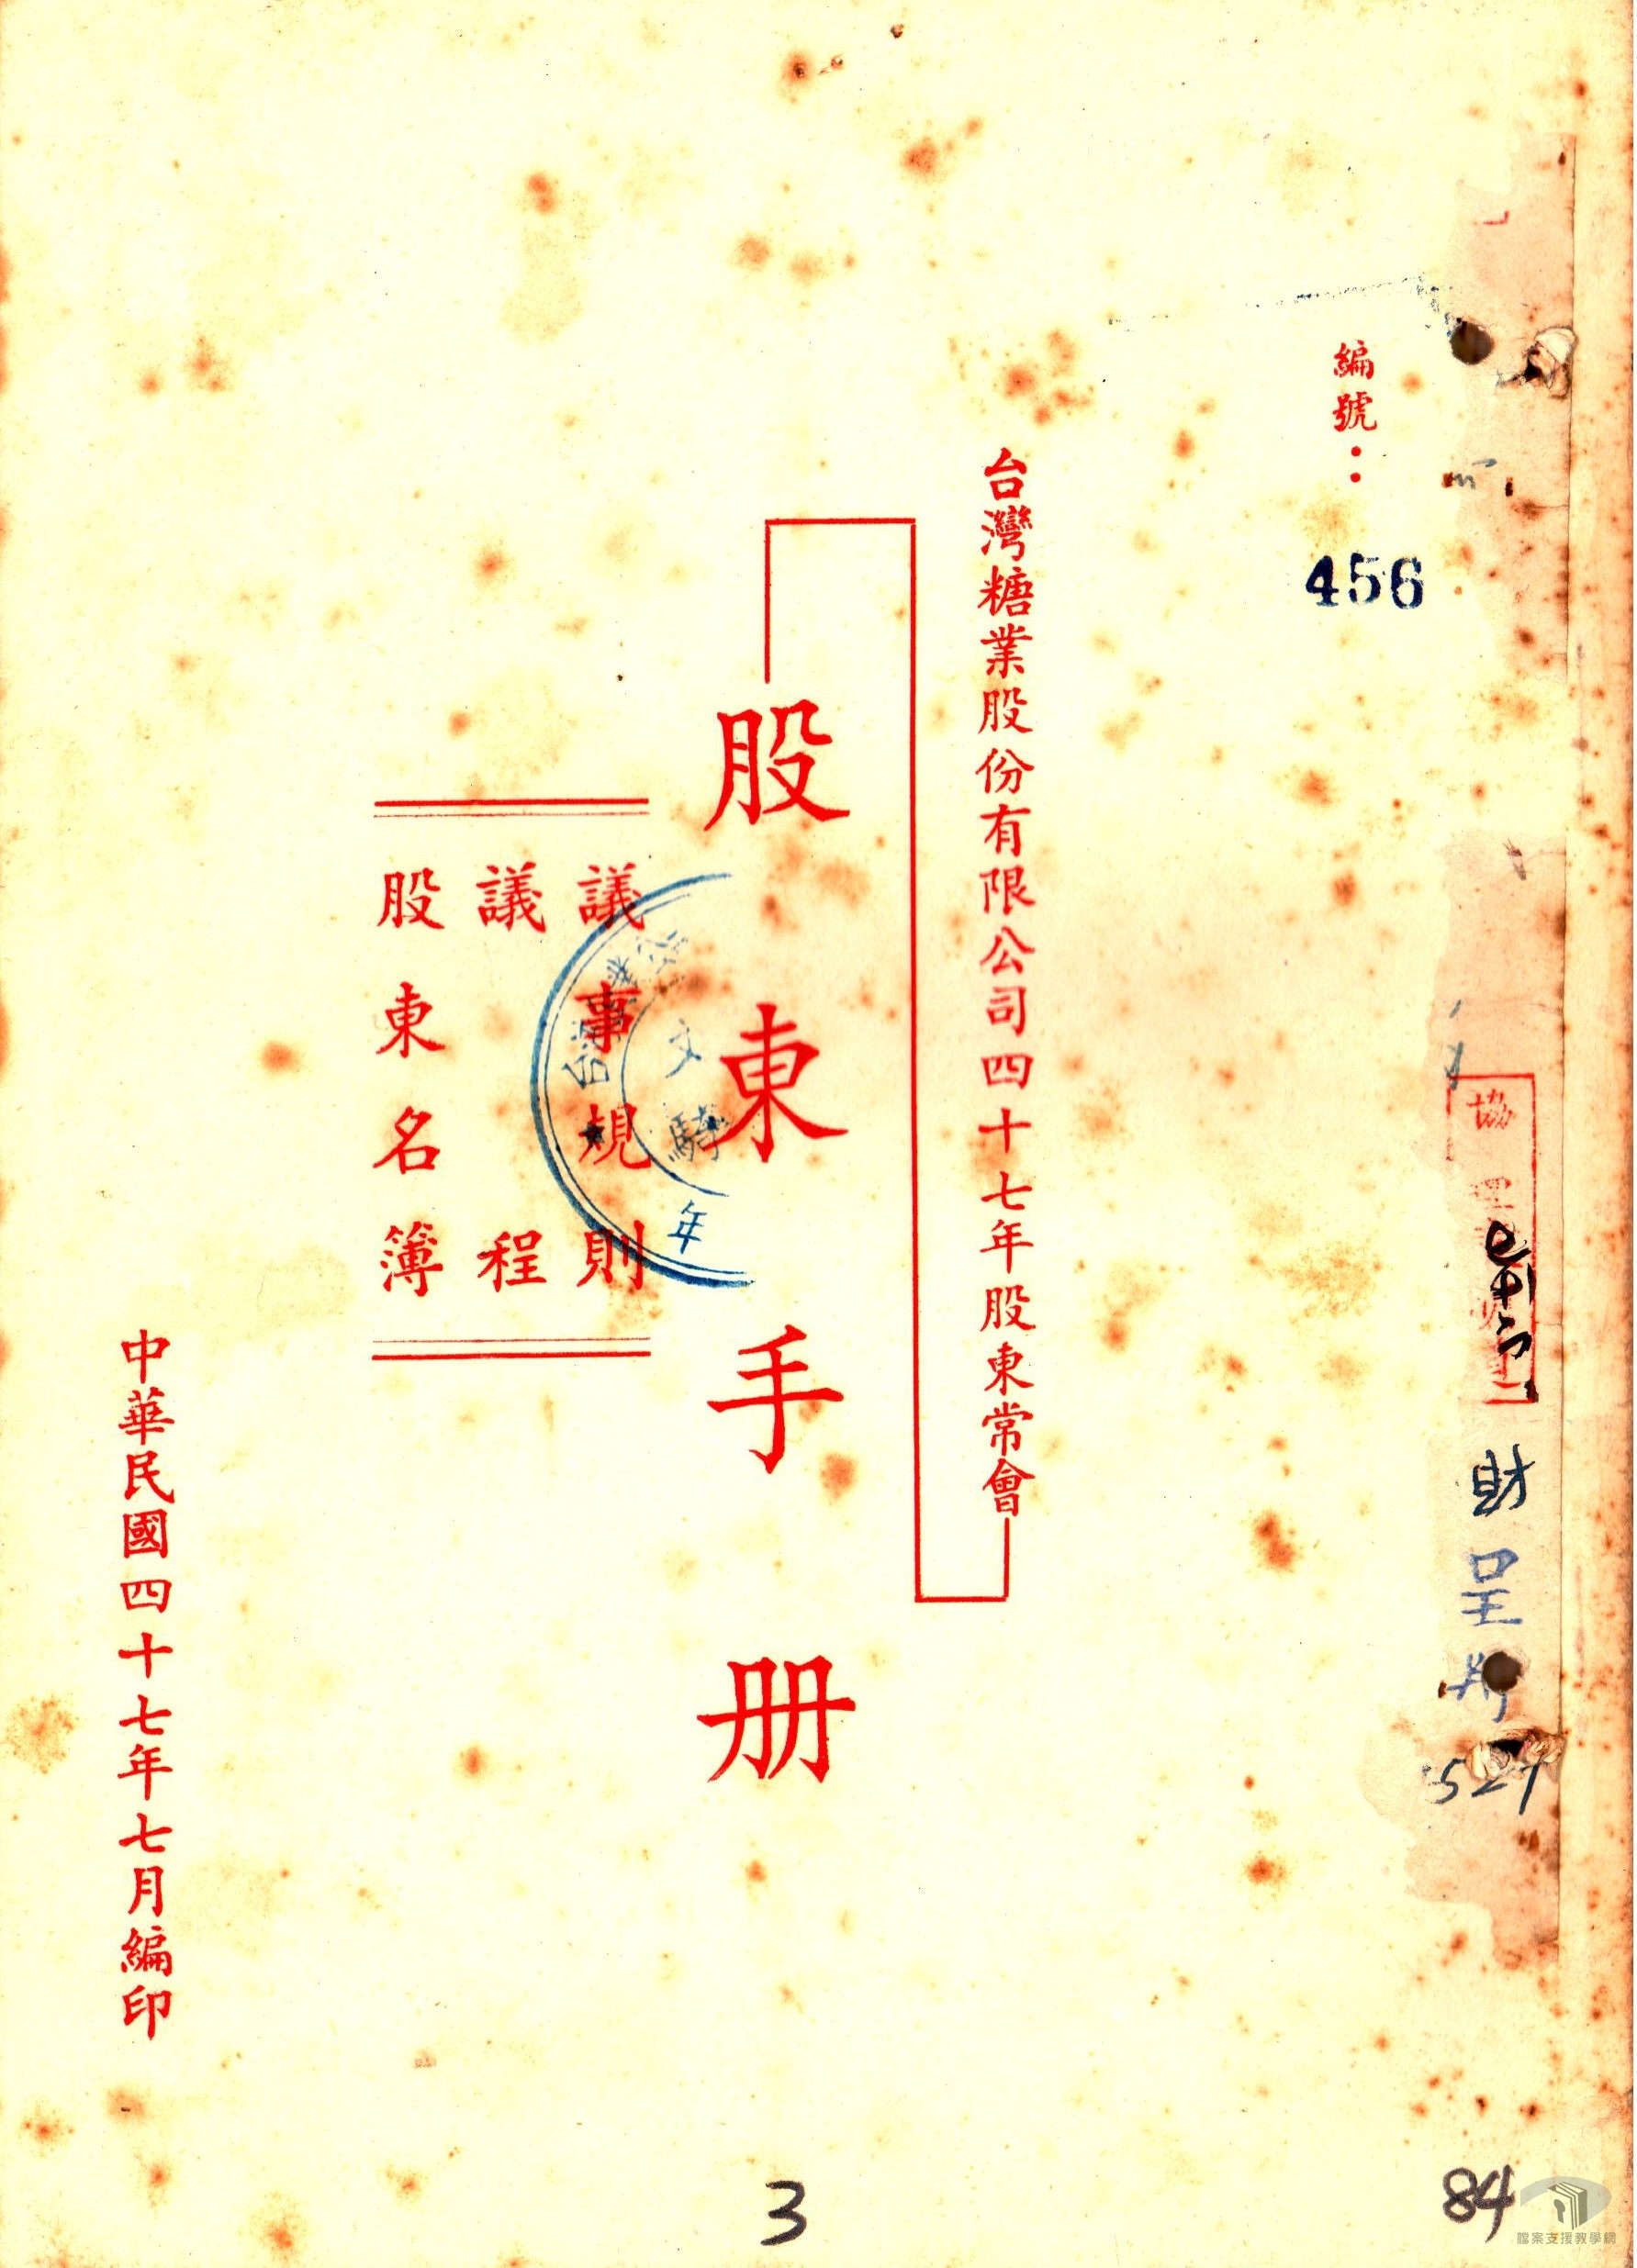 編號：
456
台灣糖業股份有限公司四十七年股東常會
股東手册
議事規則
議程
股東名簿
中華民國四十七年七月編印
財
呈
527
3
84
檔案支援教學網